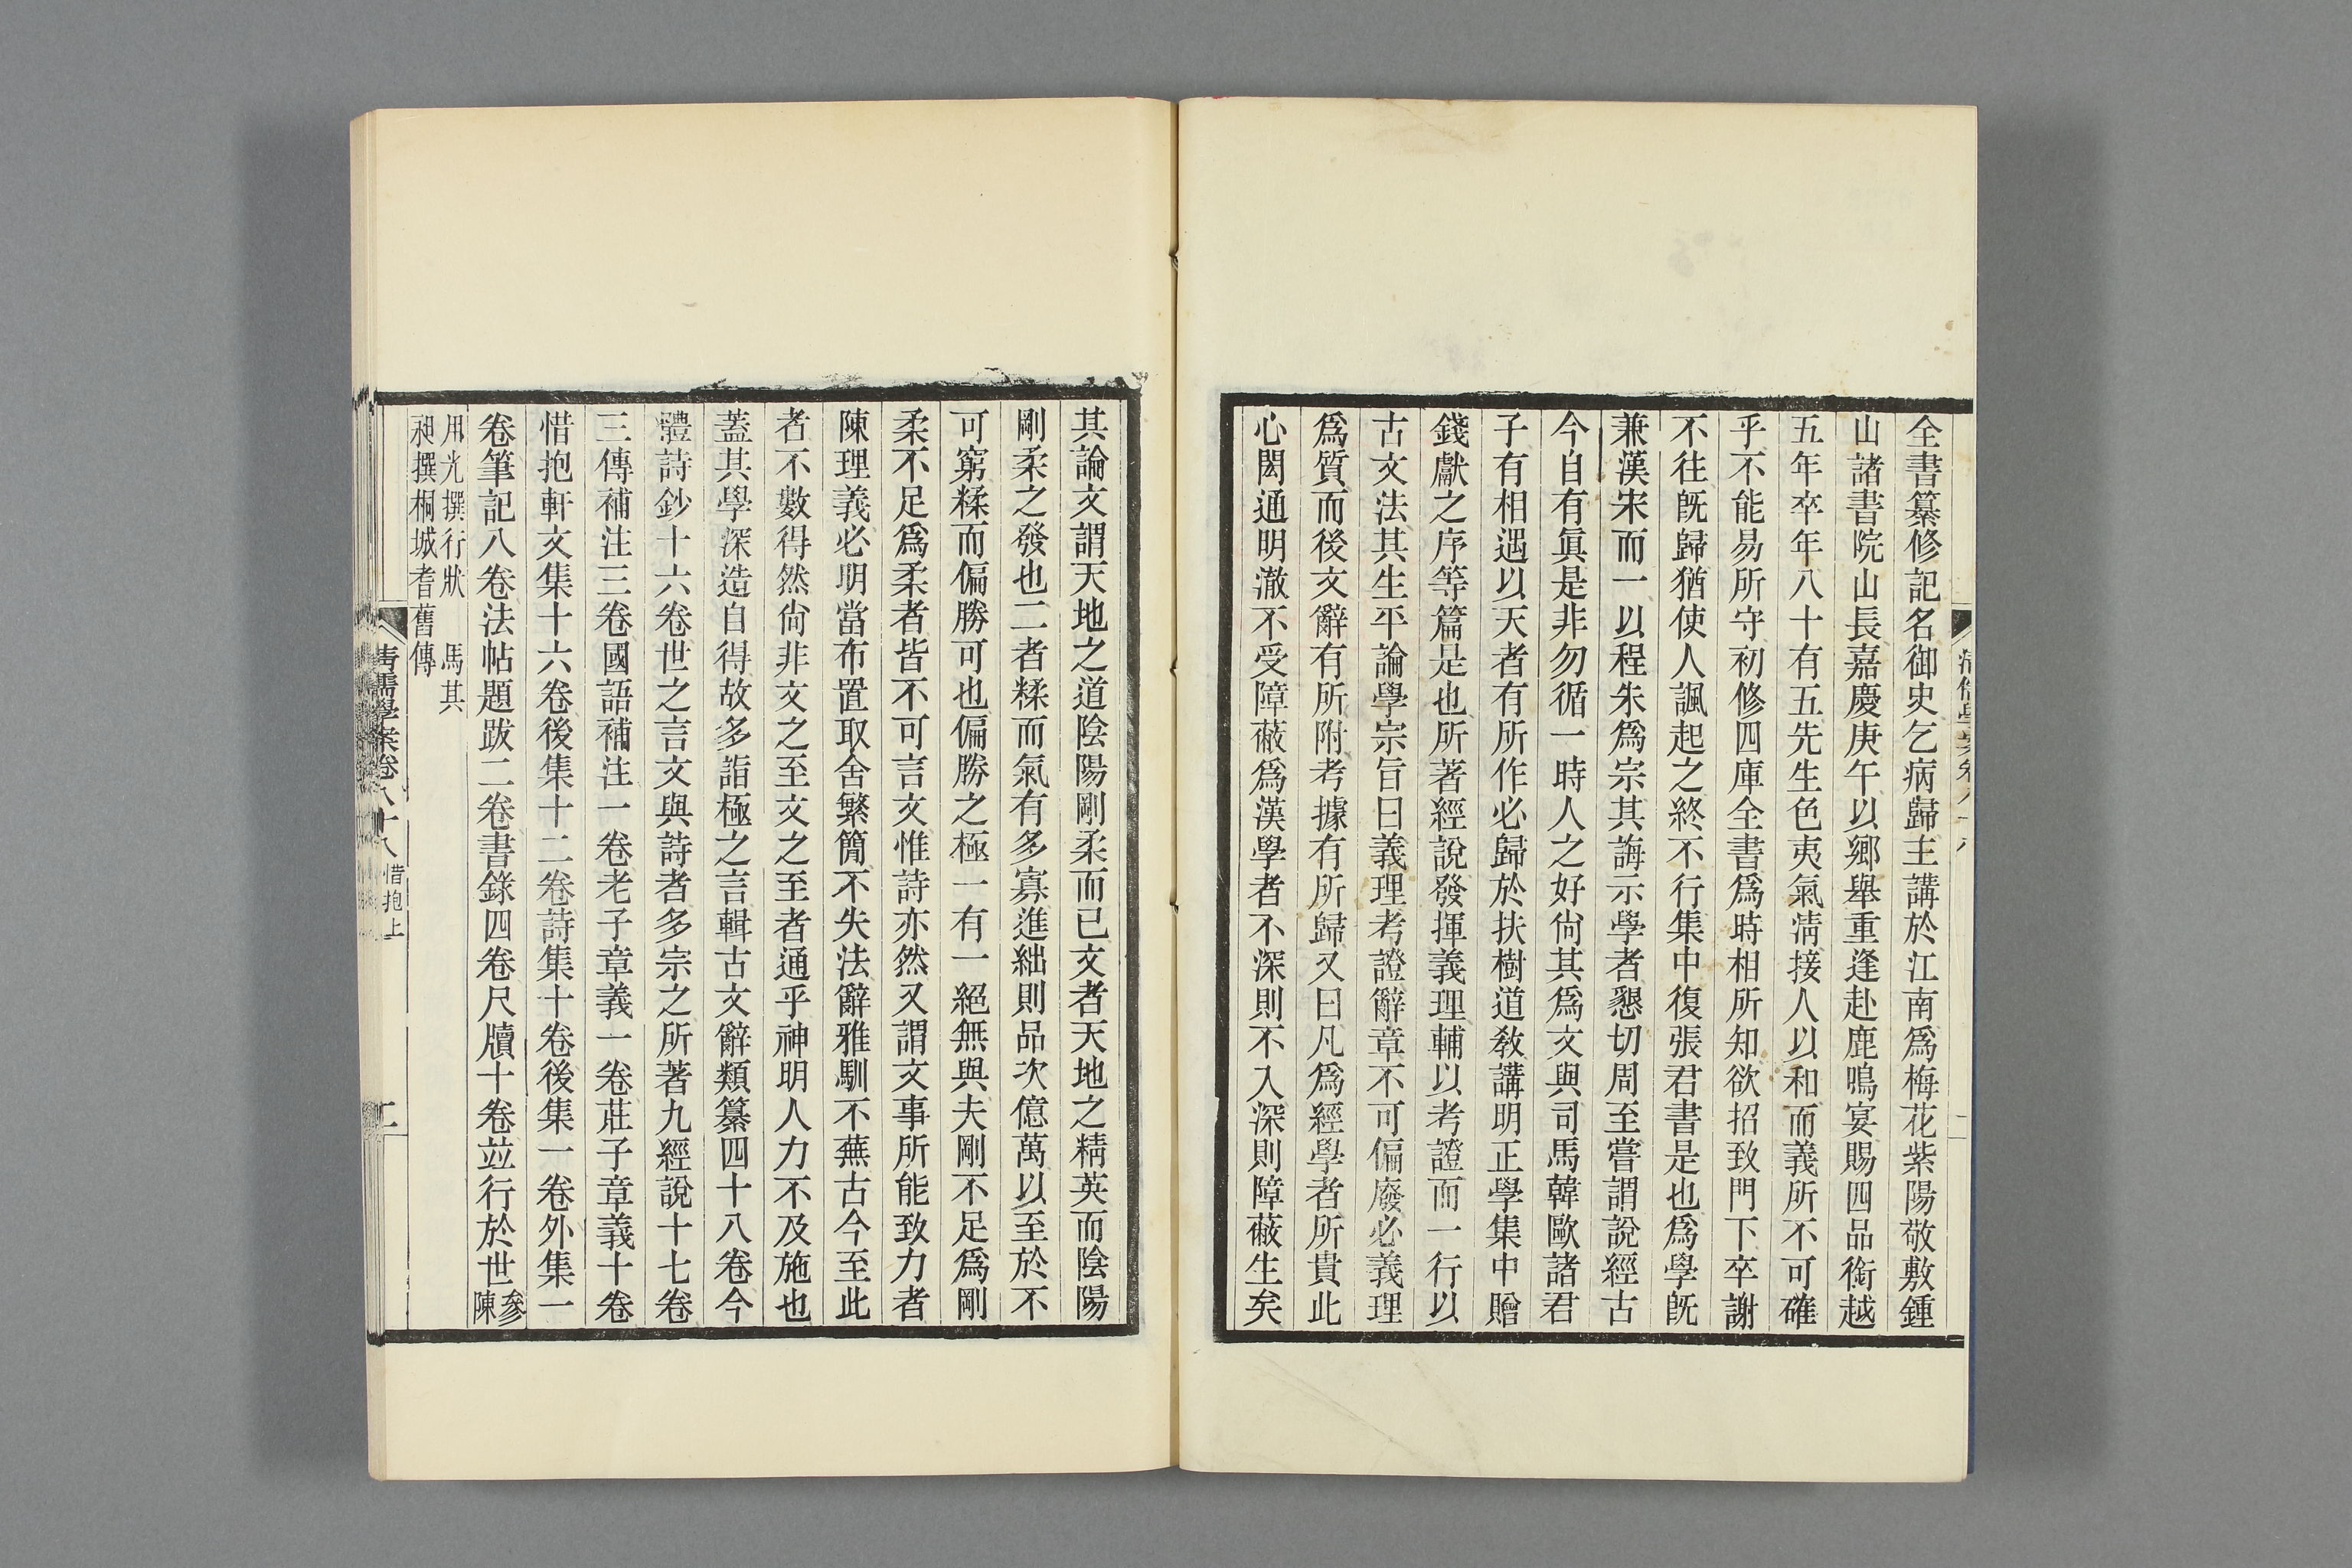 全書纂修記名御史乞病歸主講於江南爲梅花紫陽敬敷鍾
山諸書院山長嘉慶庚午以鄉舉重逢赴鹿鳴宴賜四品銜越
五年卒年八十有五先生色夷氣清接人以和而義所不可確
乎不能易所守初修四庫全書爲時相所知欲招致門下卒謝
不往旣歸猶使人諷起之終不行集中復張君書是也爲學旣
兼漢宋而一以程朱爲宗其誨示學者懇切周至嘗謂說經古
今自有眞是非勿循一時人之好尙其爲文與司馬韓歐諸君
子有相遇以天者有所作必歸於扶樹道敎講明正學集中贈
錢獻之序等篇是也所著經說發揮義理輔以考證而一行以
古文法其生平論學宗旨曰義理考證辭章不可偏廢必義理
爲質而後文辭有所附考據有所歸又曰凡爲經學者所貴此
心閎通明澈不受障蔽爲漢學者不深則不入深則障蔽生矣
其論文謂天地之道陰陽剛柔而已文者天地之精英而陰陽
剛柔之發也二者糅而氣有多寡進絀則品次億萬以至於不
可窮糅而偏勝可也偏勝之極一有一絕無與夫剛不足爲剛
柔不足爲柔者皆不可言文惟詩亦然又謂文事所能致力者
陳理義必明當布置取舍繁簡不失法辭雅馴不蕪古今至此
者不數得然尙非文之至文之至者通乎神明人力不及施也
蓋其學深造自得故多詣極之言輯古文辭類纂四十八卷今
體詩鈔十六卷世之言文與詩者多宗之所著九經說十七卷
三傳補注三卷國語補注一卷老子章義一卷莊子章義十卷
惜抱軒文集十六卷後集十二卷詩集十卷後集一卷外集一
卷筆記八卷法帖題跋二卷書錄四卷尺牘十卷竝行於世參
陳
用光撰行狀 馬其
昶撰桐城耆舊傳
清儒學案卷八十八 惜抱上 二